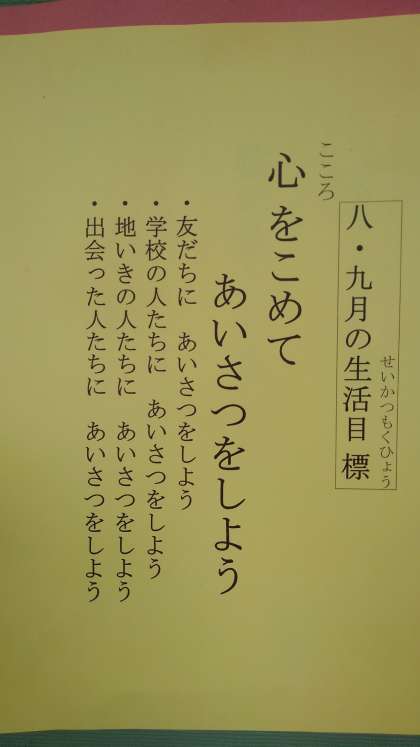 八・九月の生活目標
せいかつもくひょう
こころ
心をこめて
あいさつをしよう
・友だちに　あいさつをしよう
・学校の人たちに　あいさつをしよう
・地いきの人たちに　あいさつをしよう
・出会った人たちに　あいさつをしよう